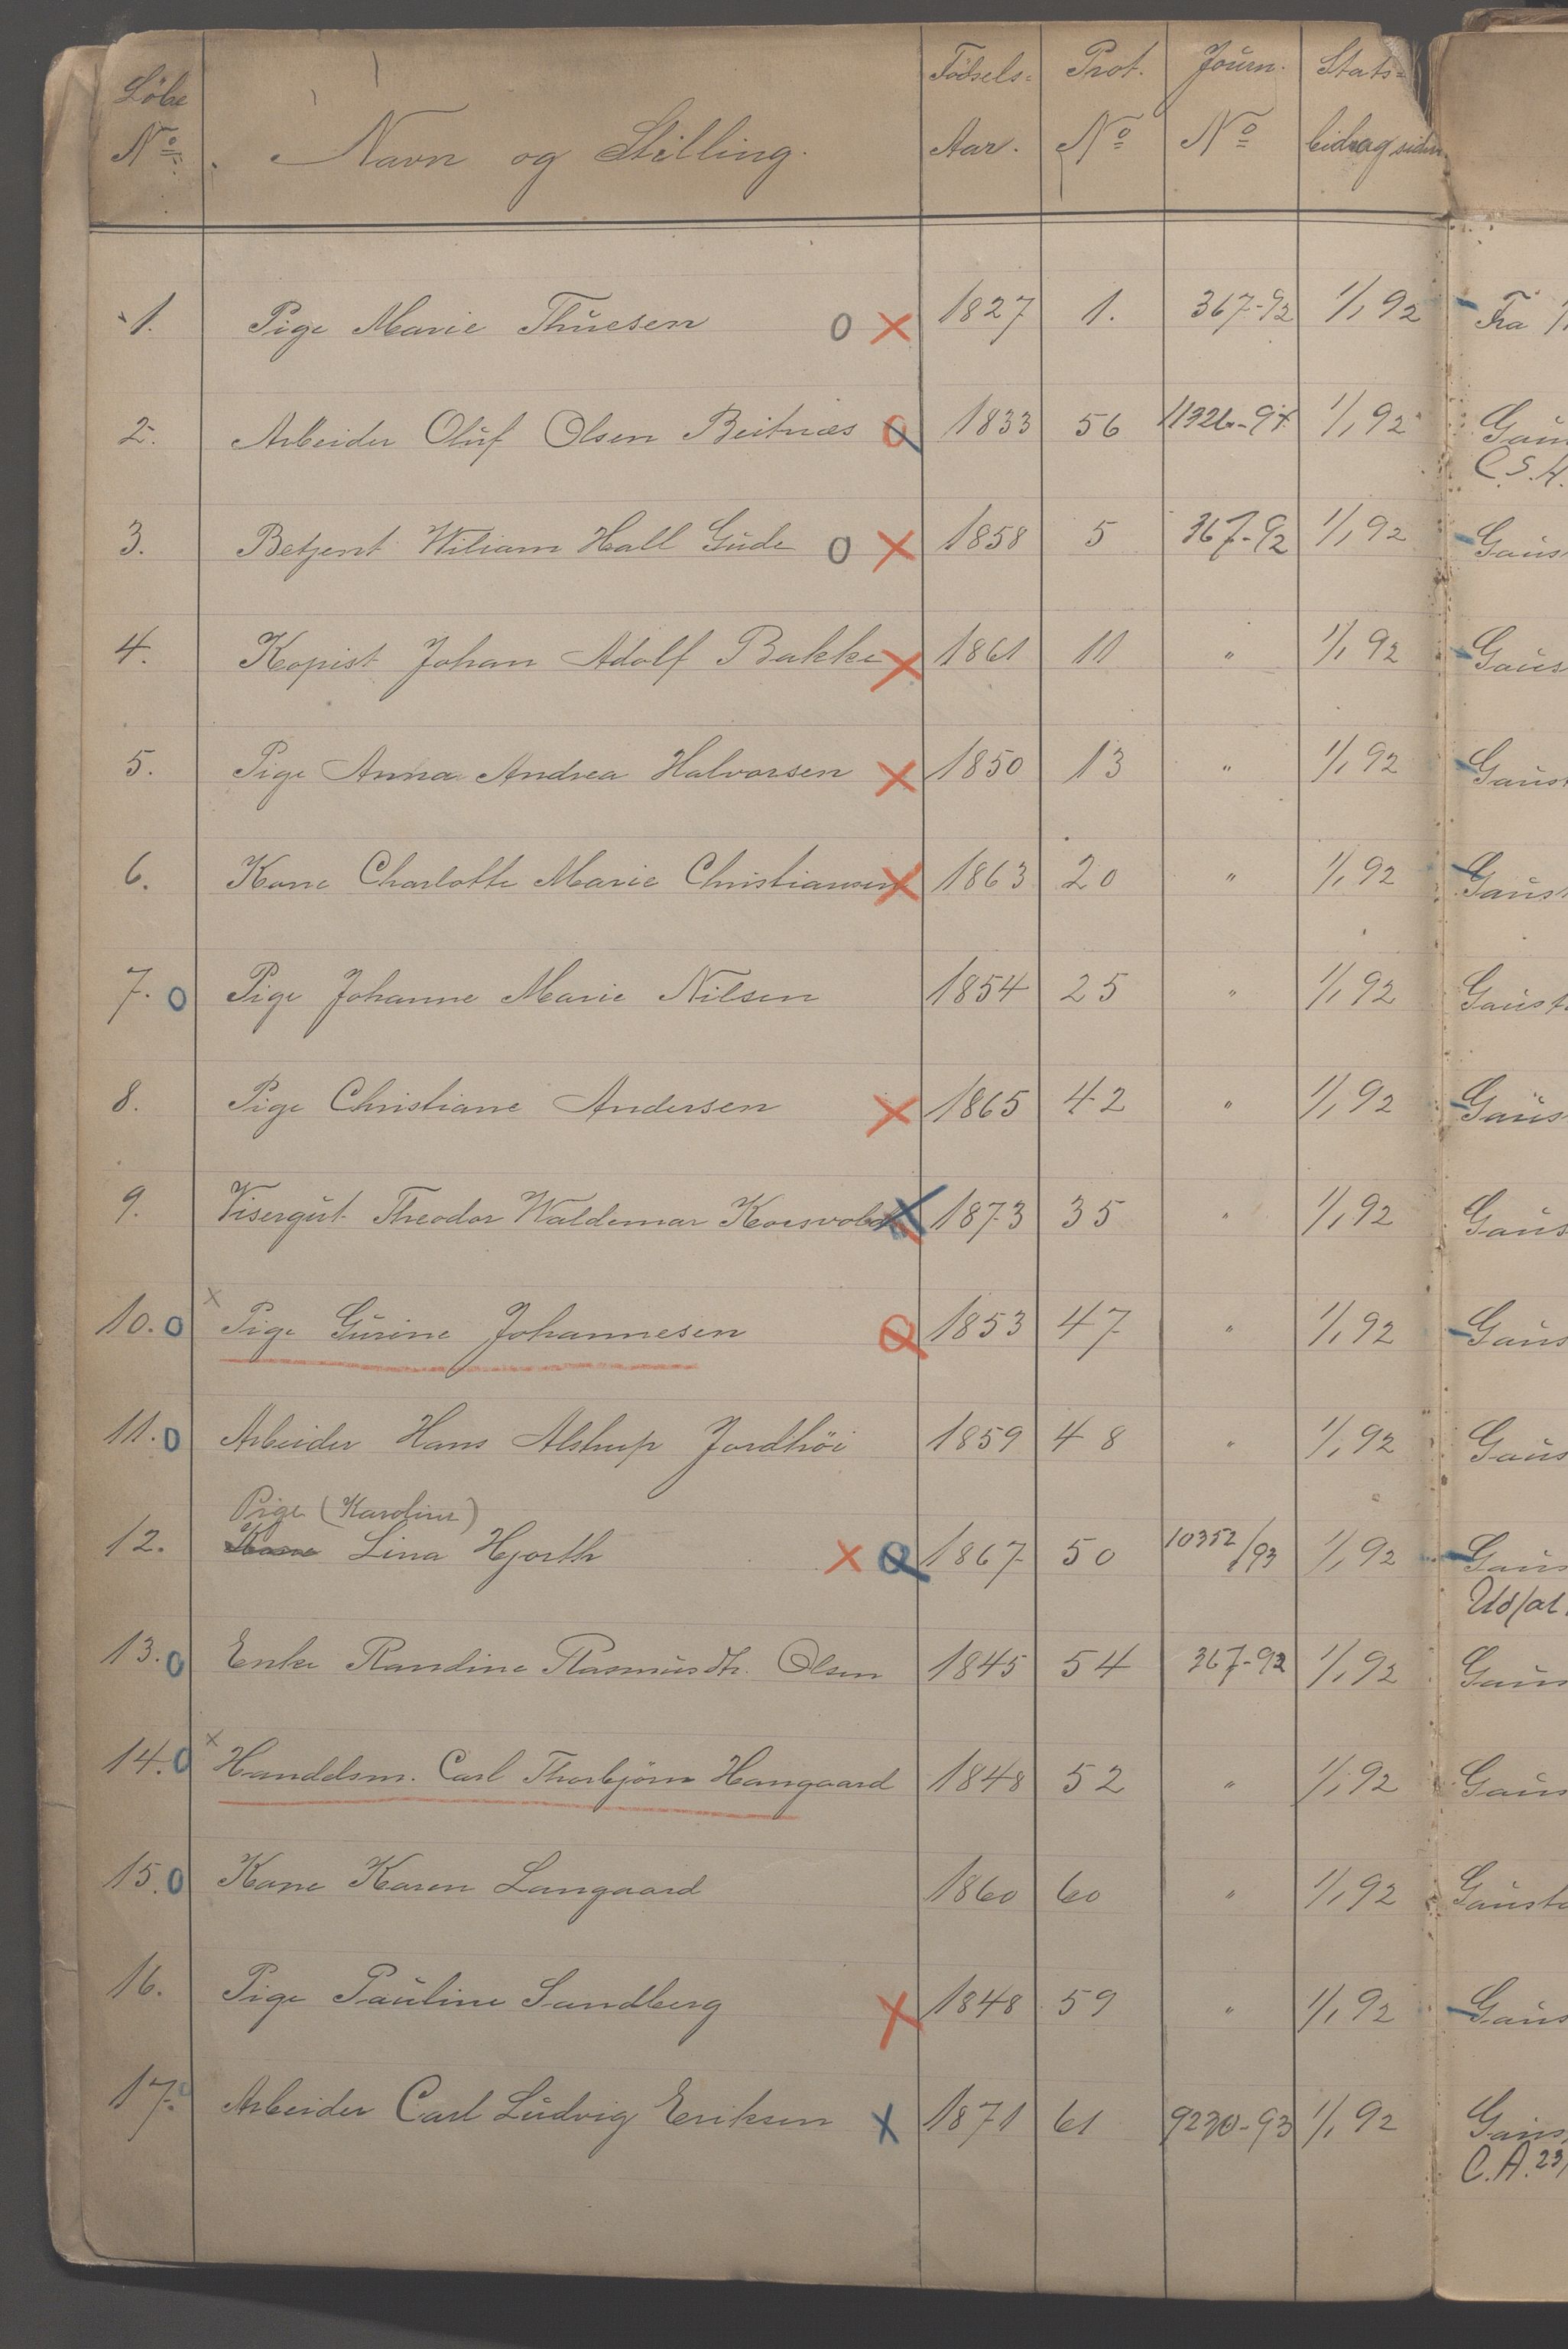 Löbe Nº. Navn og Stilling. Fødsels- Aar. Prot. Nº Journ. Nº Stats- bidrag siden
1. Pige Marie Thuesen o x 1827 1. 367-92 1/1 92 Fra
2. Arbeider Oluf Olsen Beitnæs 1833 56 1/1 92
C.S.H.
3. Betjent Wiliam Hall Gude o x 1858 5 367-92 1/1 92
4. Kopist Johan Adolf Bakke x 1861 11 " 1/1 92
5. Pige Anna Andrea Halvorsen x 1850 13 " 1/1 92
6. Kone Charlotte Marie Christiansen x 1863 20 " 1/1 92
7. o Pige Johanne Marie Nilsen 1854 25 " 1/1 92
8. Pige Christiane Andersen x 1865 42 " 1/1 92
9. Visergut Theodor Waldemar Korsvold x 1873 35 " 1/1 92
10. o x Pige Gurine Johannesen 1853 47 " 1/1 92
11. o Arbeider Hans Alstrup Jordhöi 1859 48 " 1/1 92
Pige (Karoline)
12. Kone Lina Hjorth x 1867 50 10352/93 1/1 92
13. o Enke Randine Rasmusdtr. Olsen 1845 54 367-92 1/1 92
14. o x Handelsm. Carl Thorbjörn Hangaard 1848 52 " 1/1 92
15. o Kone Karen Langaard 1860 60 " 1/1 92
16. Pige Pauline Sandberg x 1848 59 " 1/1 92
17. Arbeider Carl Ludvig Eriksen x 1871 61 9230-93 1/1 92
C.A. 23/